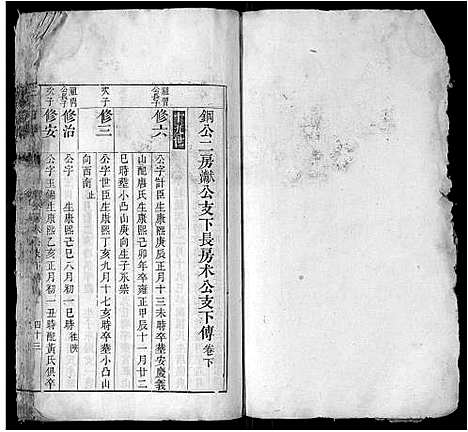 鋼公二房獻公支下長房术公支下傳 卷下
十九世
祖習公長子
修六
公字計臣生康熙庚辰正月十三未時卒葬安慶義
山配唐氏生康熙己卯年卒雍正甲辰十一月廿二
巳時葬小凸山庚向生子永崇
次子
修三
公字世臣生康熙丁亥九月十七亥時卒葬小凸山
向西南止
公長子
修治
公字 生康熙己巳八月初一巳時往陝
次子
修安
公字玉錫生康熙乙亥正月初一丑時配黃氏俱卒
四十三